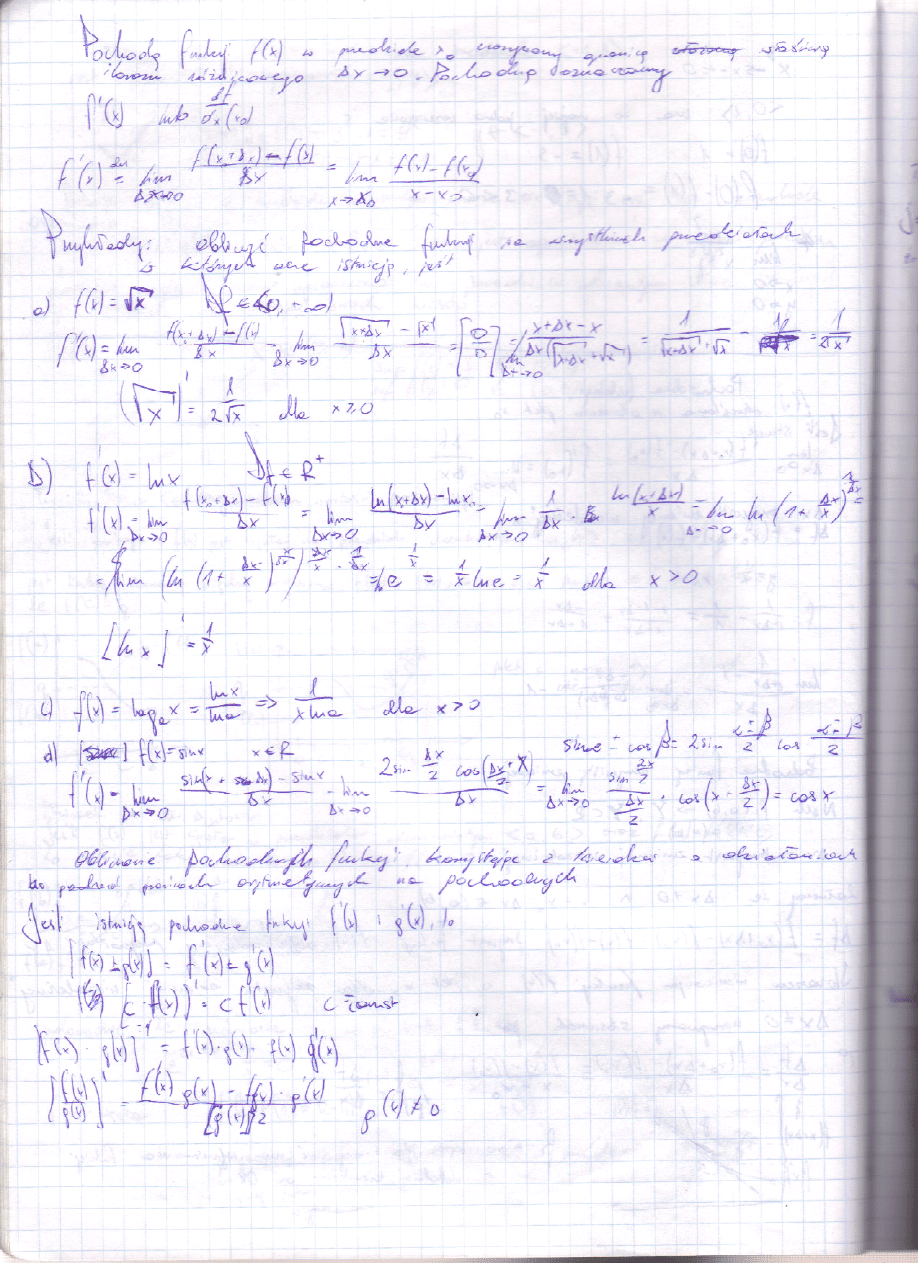 Pochodą funkcji f(x) w x₀ nazywamy granicę właściwą
ilorazu różnicowego Δx→0. Pochodną oznaczamy
f'(x) lub df/dx (x₀)
f'(x) = lim Δx→0 (f(x₀+Δx) - f(x))/Δx = lim x→x₀ (f(x) - f(x₀))/(x - x₀)
Przykłady: obliczyć pochodne funkcji we wszystkich
w których one istnieją, jeśli
a) f(x) = √x Df ∈ <0, +∞)
f'(x) = lim Δx→0 (f(x+Δx) - f(x))/Δx = lim Δx→0 (√x+Δx - √x)/Δx = [0/0] = lim Δx→0 (x+Δx - x)/(Δx(√x+Δx + √x)) = 1/(√x+Δx + √x) = 1/(2√x)
(√x)' = 1/(2√x) dla x≥0
b) f'(x) = ln x Df ∈ R⁺
f'(x) = lim Δx→0 (f(x₀+Δx) - f(x))/Δx = lim Δx→0 (ln(x+Δx) - ln x)/Δx = lim Δx→0 1/Δx · ln(x+Δx)/x = lim Δx→0 ln(1 + Δx/x)^(1/Δx) =
= lim (ln(1 + Δx/x)^(x/Δx))^(Δx/x · 1/Δx) = ln e^(1/x) = 1/x ln e = 1/x dla x > 0
[ln x]' = 1/x
c) f(x) = log_a x = ln x/ln a => 1/(x ln a) dla x > 0
d) f(x) = sin x x ∈ R sin α - cos β = 2 sin (α - β)/2 cos (α + β)/2
f'(x) = lim Δx→0 (sin(x + Δx) - sin x)/Δx = lim Δx→0 (2 sin Δx/2 cos(Δx/2 + x))/Δx = lim Δx→0 (sin Δx/2)/(Δx/2) · cos(x - Δx/2) = cos x
pochodnych funkcji, korzystając z o działaniach
arytmetycznych na pochodnych
Jeśli istnieją pochodne funkcji f'(x) i g'(x), to
[f(x) ± g(x)]' = f'(x) ± g'(x)
[c · f(x)]' = c f'(x) c = const
[f(x) · g(x)]' = f'(x) · g(x) · f(x) g'(x)
[f(x)/g(x)]' = (f'(x) g(x) - f(x) · g'(x))/[g(x)]² g(x) ≠ 0